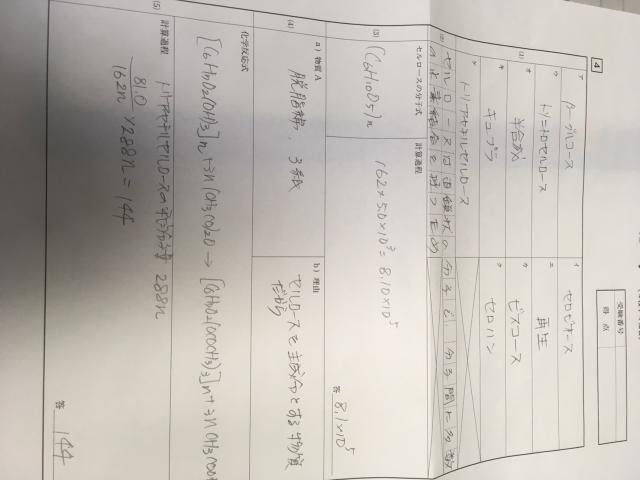 受験番号
得点
4
(1)
ア β-グルコース
イ セロビオース
ウ トリニトロセルロース
エ 再生
オ 半合成
カ ビスコース
キ キュプラ
ク セロハン
ケ トリアセチルセルロース
(2)
セルロースは直鎖状の分子で、分子間に多数
の水素結合を持つため
(3)
セルロースの分子式
(C6H10O5)n
計算過程
162×5.0×10³=8.10×10⁵
答 8.1×10⁵
(4)
a）物質 A
脱脂綿、ろ紙
b）理由
セルロースを主成分とする物質
だから
化学反応式
[C6H7O2(OH)3]n+3n(CH3CO)2O → [C6H7O2(OCOCH3)3]n+3nCH3COOH
(5)
計算過程
トリアセチルセルロースの平均分子量 288n
81.0/162n × 288n = 144
答 144